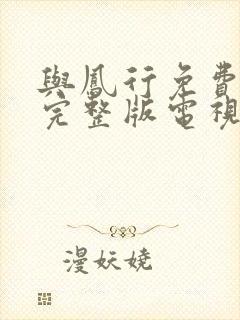 與鳳行免費
完整版電視
漫妖嬈